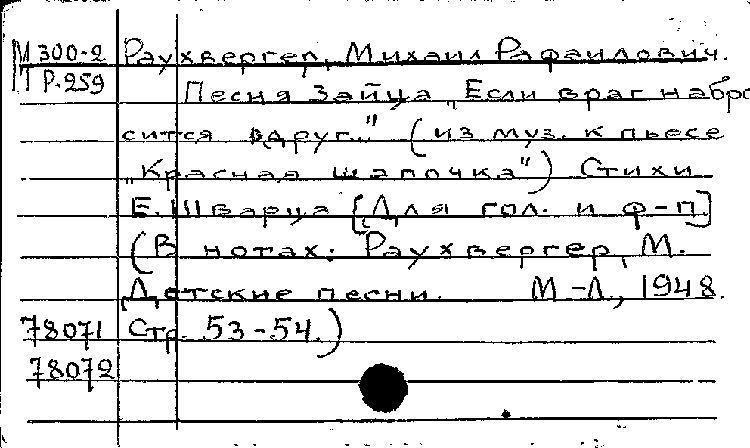 М 300-2 Раухвергер, Михаил Рафаилович.
Р-259 Песня Зайца „Если враг набро
сится вдруг.." (из муз. к пьесе
„Красная шапочка") Стихи
Е. Шварца [Для гол. и ф-п]
(В нотах: Раухвергер, М.
Детские песни. М-Л, 1948.
78071 Стр. 53-54.)
78072